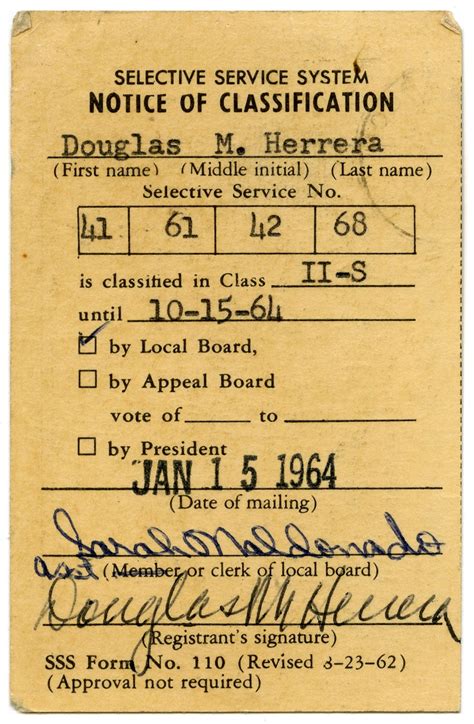 SELECTIVE SERVICE SYSTEM
NOTICE OF CLASSIFICATION
Douglas M. Herrera
(First name) (Middle initial) (Last name)
Selective Service No.
41 61 42 68
is classified in Class II-S
until 10-15-64
by Local Board,
by Appeal Board
vote of to
by President
JAN 15 1964
(Date of mailing)
Sarah Maldonado
asst (Member or clerk of local board)
Douglas M Herrera
(Registrant's signature)
SSS Form No. 110 (Revised 3-23-62)
(Approval not required)